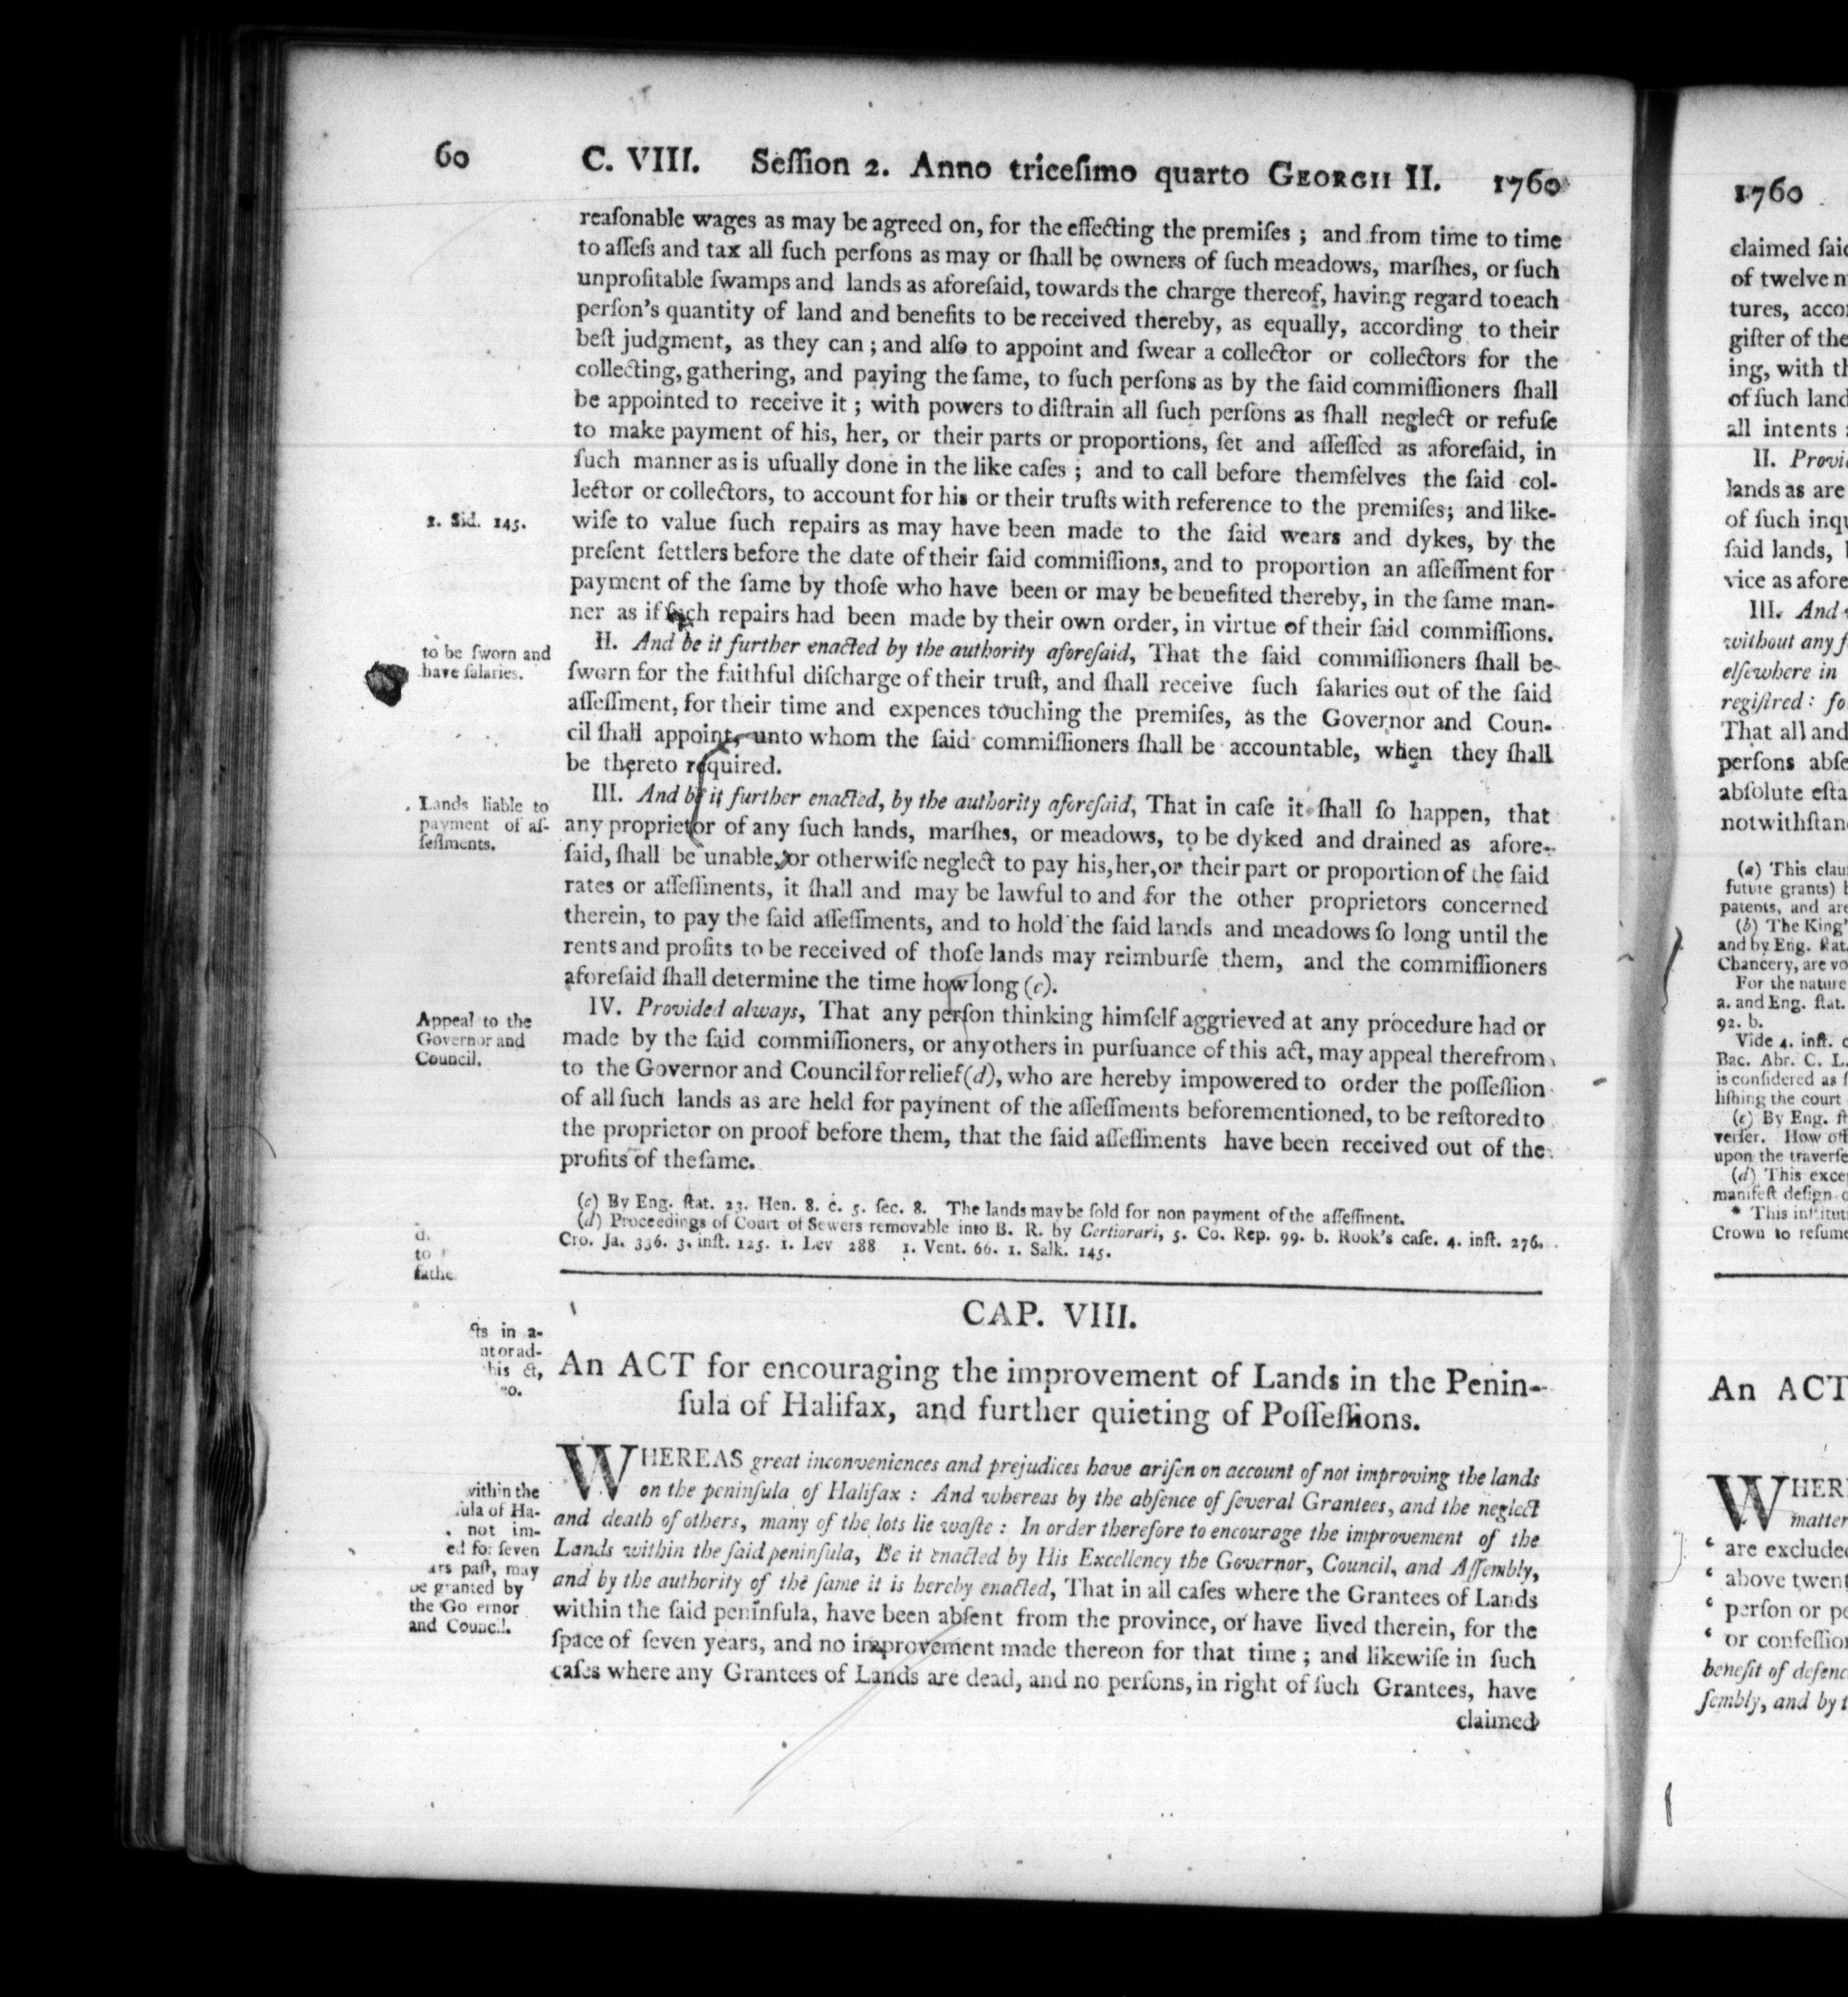 60 C. VIII. Seſſion 2. Anno triceſimo quarto GEORGII II. 1760
reaſonable wages as may be agreed on, for the effecting the premiſes ; and from time to time
to aſſeſs and tax all ſuch perſons as may or ſhall be owners of ſuch meadows, marſhes, or ſuch
unprofitable ſwamps and lands as aforeſaid, towards the charge thereof, having regard to each
perſon's quantity of land and benefits to be received thereby, as equally, according to their
beſt judgment, as they can ; and alſo to appoint and ſwear a collector or collectors for the
collecting, gathering, and paying the ſame, to ſuch perſons as by the ſaid commiſſioners ſhall
be appointed to receive it ; with powers to diſtrain all ſuch perſons as ſhall neglect or refuſe
to make payment of his, her, or their parts or proportions, ſet and aſſeſſed as aforeſaid, in
ſuch manner as is uſually done in the like caſes ; and to call before themſelves the ſaid col-
lector or collectors, to account for his or their truſts with reference to the premiſes; and like-
1. Sid. 145.
wiſe to value ſuch repairs as may have been made to the ſaid wears and dykes, by the
preſent ſettlers before the date of their ſaid commiſſions, and to proportion an aſſeſſment for
payment of the ſame by thoſe who have been or may be benefited thereby, in the ſame man-
ner as if ſuch repairs had been made by their own order, in virtue of their ſaid commiſſions.
to be ſworn and
have ſalaries.
II. And be it further enacted by the authority aforeſaid, That the ſaid commiſſioners ſhall be
ſworn for the faithful diſcharge of their truſt, and ſhall receive ſuch ſalaries out of the ſaid
aſſeſſment, for their time and expences touching the premiſes, as the Governor and Coun-
cil ſhall appoint, unto whom the ſaid commiſſioners ſhall be accountable, when they ſhall
be thereto required.
Lands liable to
payment of aſ-
ſeſſments.
III. And be it further enacted, by the authority aforeſaid, That in caſe it ſhall ſo happen, that
any proprietor of any ſuch lands, marſhes, or meadows, to be dyked and drained as afore-
ſaid, ſhall be unable, or otherwiſe neglect to pay his, her, or their part or proportion of the ſaid
rates or aſſeſſments, it ſhall and may be lawful to and for the other proprietors concerned
therein, to pay the ſaid aſſeſſments, and to hold the ſaid lands and meadows ſo long until the
rents and profits to be received of thoſe lands may reimburſe them, and the commiſſioners
aforeſaid ſhall determine the time how long (c).
Appeal to the
Governor and
Council.
IV. Provided always, That any perſon thinking himſelf aggrieved at any procedure had or
made by the ſaid commiſſioners, or any others in purſuance of this act, may appeal therefrom
to the Governor and Council for relief (d), who are hereby impowered to order the poſſeſſion
of all ſuch lands as are held for payment of the aſſeſſments beforementioned, to be reſtored to
the proprietor on proof before them, that the ſaid aſſeſſments have been received out of the
profits of the ſame.
(c) By Eng. ſtat. 23. Hen. 8. c. 5. ſec. 8. The lands may be ſold for non payment of the aſſeſſment.
(d) Proceedings of Court of Sewers removable into B. R. by Certiorari, 5. Co. Rep. 99. b. Rook's caſe. 4. inſt. 276.
Cro. Ja. 336. 3. inſt. 125. 1. Lev 288 1. Vent. 66. 1. Salk. 145.
CAP. VIII.
An ACT for encouraging the improvement of Lands in the Penin-
ſula of Halifax, and further quieting of Poſſeſſions.
WHEREAS great inconveniences and prejudices have ariſen on account of not improving the lands
on the peninſula of Halifax : And whereas by the abſence of ſeveral Grantees, and the neglect
and death of others, many of the lots lie waſte : In order therefore to encourage the improvement of the
Lands within the ſaid peninſula, Be it enacted by His Excellency the Governor, Council, and Aſſembly,
and by the authority of the ſame it is hereby enacted, That in all caſes where the Grantees of Lands
within the ſaid peninſula, have been abſent from the province, or have lived therein, for the
ſpace of ſeven years, and no improvement made thereon for that time ; and likewiſe in ſuch
caſes where any Grantees of Lands are dead, and no perſons, in right of ſuch Grantees, have
claimed
within the
ula of Ha-
not im-
ed for ſeven
ars paſt, may
be granted by
the Go ernor
and Council.
1760
claimed ſaid
of twelve m
tures, acco
giſter of the
ing, with th
of ſuch land
all intents
II. Provi
lands as are
of ſuch inqu
ſaid lands,
vice as afore
III. And
without any f
elſewhere in
regiſtred : fo
That all and
perſons abſe
abſolute eſta
notwithſtan
(a) This clau
future grants)
patents, and are
(b) The King'
and by Eng. ſtat.
Chancery, are vo
For the nature
a. and Eng. ſtat.
92. b.
Vide 4. inſt. c
Bac. Abr. C. L.
is conſidered as
liſhing the court
(c) By Eng. ſt
verſer. How off
upon the traverſe
(d) This excep
manifeſt deſign o
* This inſtituti
Crown to reſume
An ACT
WHERE
matter
‘ are excluded
‘ above twent
‘ perſon or pe
‘ or confeſſion
benefit of defenc
ſembly, and by t